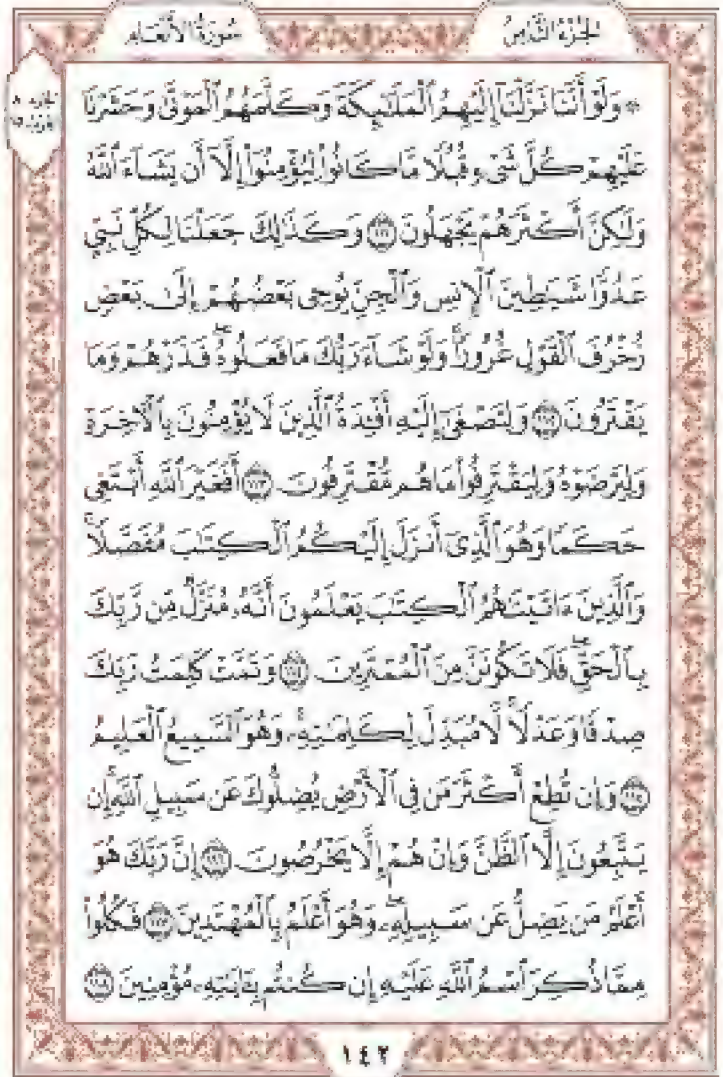 سُورَةُ الأَنْعَامِ
الجُزْءُ الثَّامِنُ
۞ وَلَوْ أَنَّنَا نَزَّلْنَآ إِلَيْهِمُ ٱلْمَلَٰٓئِكَةَ وَكَلَّمَهُمُ ٱلْمَوْتَىٰ وَحَشَرْنَا
عَلَيْهِمْ كُلَّ شَىْءٍ قُبُلًا مَّا كَانُوا۟ لِيُؤْمِنُوٓا۟ إِلَّآ أَن يَشَآءَ ٱللَّهُ
وَلَٰكِنَّ أَكْثَرَهُمْ يَجْهَلُونَ ١١١ وَكَذَٰلِكَ جَعَلْنَا لِكُلِّ نَبِىٍّ
عَدُوًّا شَيَٰطِينَ ٱلْإِنسِ وَٱلْجِنِّ يُوحِى بَعْضُهُمْ إِلَىٰ بَعْضٍ
زُخْرُفَ ٱلْقَوْلِ غُرُورًا ۚ وَلَوْ شَآءَ رَبُّكَ مَا فَعَلُوهُ ۖ فَذَرْهُمْ وَمَا
يَفْتَرُونَ ١١٢ وَلِتَصْغَىٰٓ إِلَيْهِ أَفْـِٔدَةُ ٱلَّذِينَ لَا يُؤْمِنُونَ بِٱلْـَٔاخِرَةِ
وَلِيَرْضَوْهُ وَلِيَقْتَرِفُوا۟ مَا هُم مُّقْتَرِفُونَ ١١٣ أَفَغَيْرَ ٱللَّهِ أَبْتَغِى
حَكَمًا وَهُوَ ٱلَّذِىٓ أَنزَلَ إِلَيْكُمُ ٱلْكِتَٰبَ مُفَصَّلًا ۚ
وَٱلَّذِينَ ءَاتَيْنَٰهُمُ ٱلْكِتَٰبَ يَعْلَمُونَ أَنَّهُۥ مُنَزَّلٌ مِّن رَّبِّكَ
بِٱلْحَقِّ ۖ فَلَا تَكُونَنَّ مِنَ ٱلْمُمْتَرِينَ ١١٤ وَتَمَّتْ كَلِمَتُ رَبِّكَ
صِدْقًا وَعَدْلًا ۚ لَّا مُبَدِّلَ لِكَلِمَٰتِهِۦ ۚ وَهُوَ ٱلسَّمِيعُ ٱلْعَلِيمُ
١١٥ وَإِن تُطِعْ أَكْثَرَ مَن فِى ٱلْأَرْضِ يُضِلُّوكَ عَن سَبِيلِ ٱللَّهِ ۚ إِن
يَتَّبِعُونَ إِلَّا ٱلظَّنَّ وَإِنْ هُمْ إِلَّا يَخْرُصُونَ ١١٦ إِنَّ رَبَّكَ هُوَ
أَعْلَمُ مَن يَضِلُّ عَن سَبِيلِهِۦ ۖ وَهُوَ أَعْلَمُ بِٱلْمُهْتَدِينَ ١١٧ فَكُلُوا۟
مِمَّا ذُكِرَ ٱسْمُ ٱللَّهِ عَلَيْهِ إِن كُنتُم بِـَٔايَٰتِهِۦ مُؤْمِنِينَ ١١٨
١٤٢